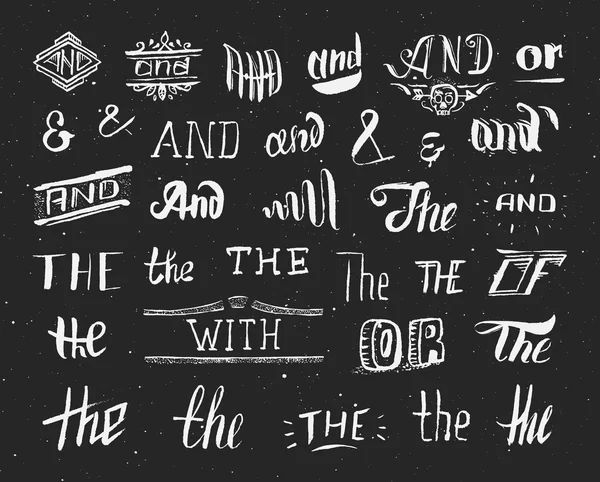 AND and AND and AND or
& & AND and & & and
AND And will The AND
THE the THE The THE OF
the WITH OR The
the the THE the the